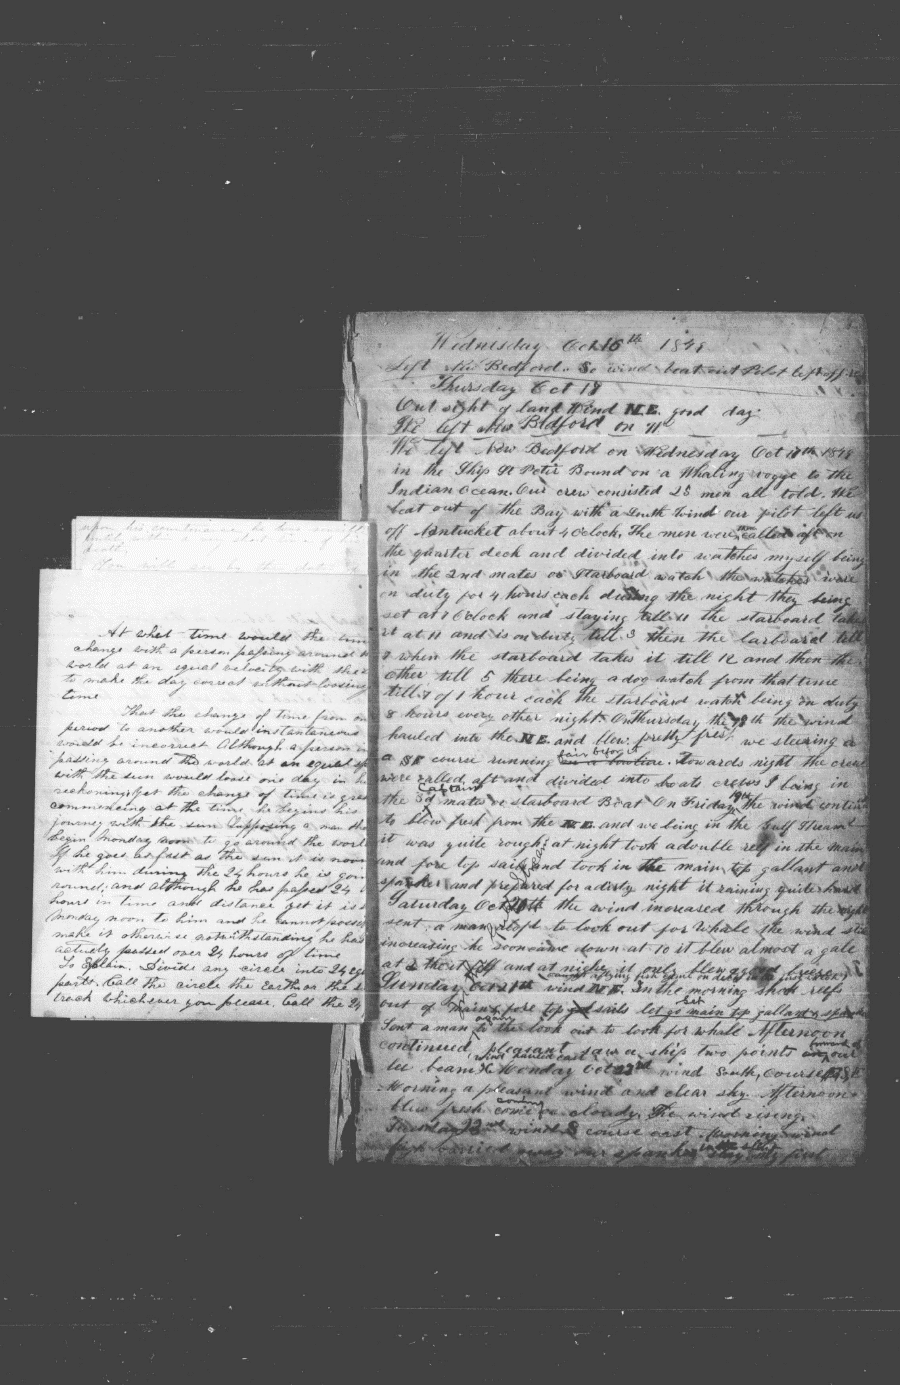 upon his countenance he
until within a very short time of his
death
At what time would the time
change with a person passing around the
world at an equal velocity with the
to make the day correct without loosing
time
That the change of time from one
period to another would instantaneous
would be incorrect Although a person in
passing around the world at an equal
with the sun would loose one day in his
reckoning yet the change of time is
commencing at the time he begins his
journey with the sun Supposing a man
begin Monday noon to go around the world
If he goes as fast as the sun it is noon
with him during the 24 hours he is going
around, and although he has passed 24
hours in time and distance yet it is
Monday noon to him and he cannot
make it otherwise notwithstanding he has
actively passed over 24 hours of time
To Explain. Divide any circle into 24
parts. Call the circle the earth or the
track whichever you please. Call the 24
Wednesday Oct 16th 1849
Left New Bedford. So wind beat out Pilot left off
Thursday Oct 18
Out sight of land Wind N.E. good day
We left New Bedford on
We left New Bedford on Wednesday Oct 17th 1849
in the Ship St Peter Bound on a Whaling voyge to the
Indian Ocean. Our crew consisted 23 men all told. We
beat out of the Bay with a South wind our pilot left us
off Nantucket about 4 Oclock, The men were called aft on
the quarter deck and divided into watches myself being
in the 2nd mates or Starboard watch the watches were
on duty for 4 hours each during the night they being
set at 7 Oclock and staying till 11 the starboard takes
it at 11 and is on duty till 3 then the larboard till
7 when the starboard takes it till 12 and then the
other till 5 there being a dog watch from that time
till 7 of 1 hour each the starboard watch being on duty
8 hours every other night. On Thursday the 18th the wind
hauled into the N.E. and blew pretty fresh we steering
a SE course running Towards night the crew
were called aft and divided into boats crews I being in
Captains
the 3d mates or starboard Boat On Friday 19th the wind
to blow fresh from the N.E. and we being in the Gulf Stream
it was quite rough; at night took a double reef in the main
and fore top sails and took in the main top gallant and
spanker and prepared for a dirty night it raining quite hard
Saturday Oct 20th the wind increased through the night
sent a man aloft to look out for Whale the wind still
increasing he soon came down at 10 it blew almost a gale
at 2 and at night it only blew a
Sunday Oct 21st wind N.E. In the morning shook reefs
out of main & fore top sails let go main top gallant &
Sent a man to the look out to look for whale Afternoon
continued pleasant saw a ship two points our
lee beam Monday Oct 22nd wind South, course ESE
Morning a pleasant wind and clear sky. Afternoon
blew fresh cloudy. The wind rising.
Tuesday 23rd wind S course east. Morning wind
away our spanker